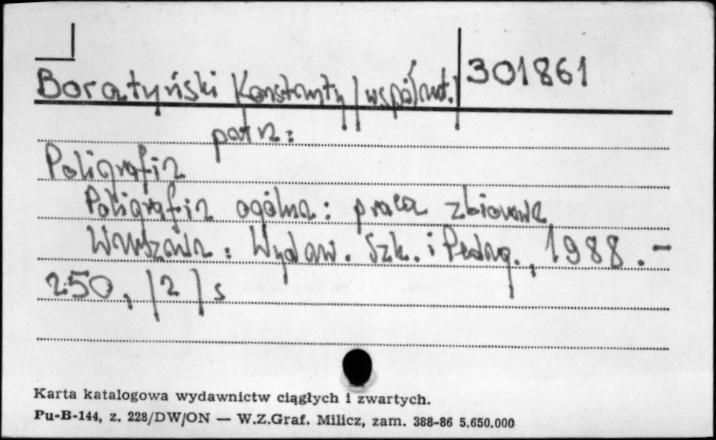 301861
Boratyński Konstanty /współaut./
patrz:
Poligrafia
Poligrafia ogólna: praca zbiorowa
Warszawa: Wydaw. Szk. i Pedag., 1988.-
250, /2/ s
Karta katalogowa wydawnictw ciągłych i zwartych.
Pu-B-144, z. 228/DW/ON — W.Z.Graf. Milicz, zam. 388-86 5.650.000